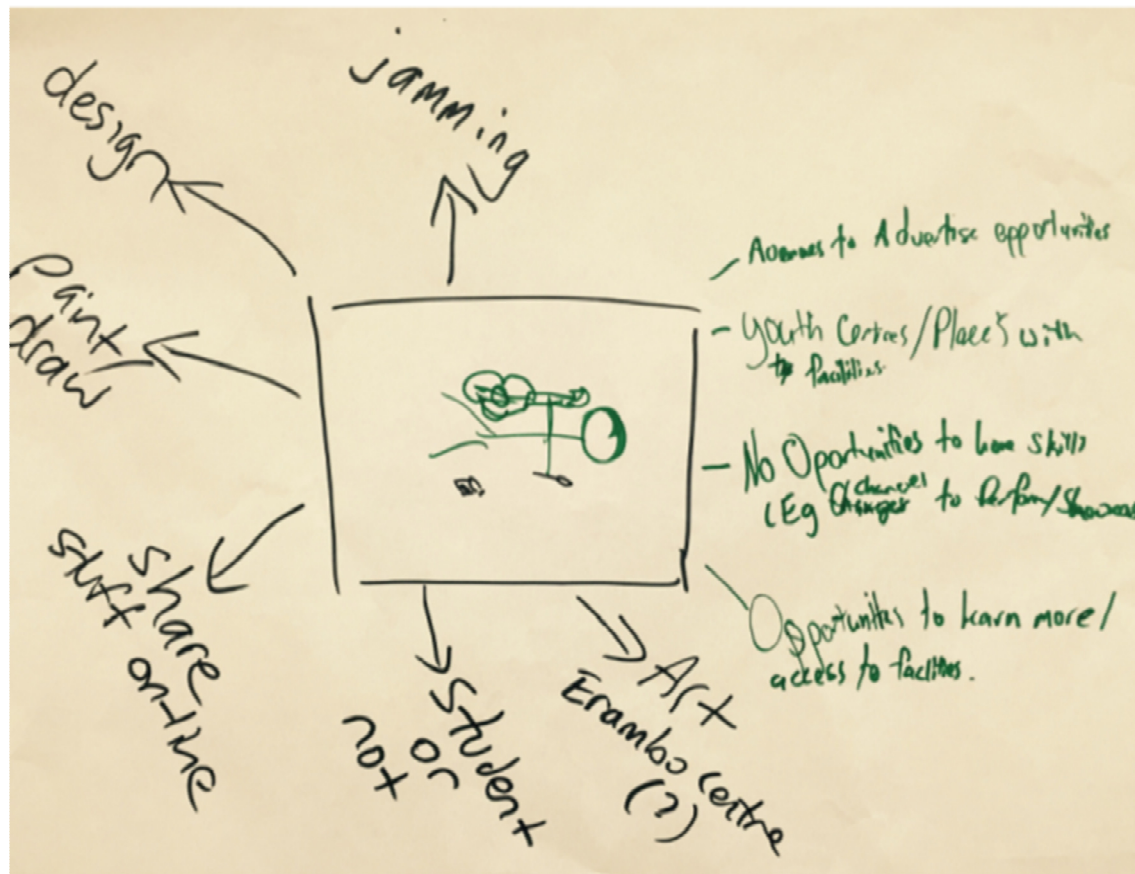 design
jamming
paint/
draw
share
stuff
on-line
Student
or
not
Art
Erambo centre
(?)
to Advertise opportunities
- Youth Centres/Places with
facilities
- No Oportunities to skills
(Eg chances to Perform/
Opportunities to learn more/
access to facilities.